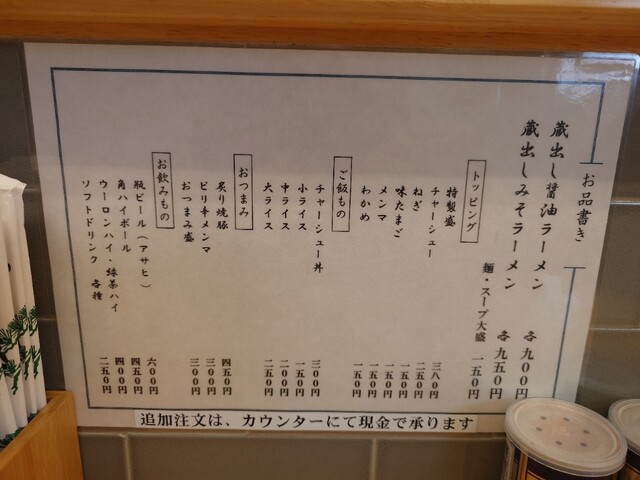 お品書き
蔵出し醤油ラーメン 各九〇〇円
蔵出しみそラーメン 各九五〇円
麺・スープ大盛 一五〇円
トッピング
特製盛 三八〇円
チャーシュー 二五〇円
ねぎ 一五〇円
味たまご 一五〇円
メンマ 一五〇円
わかめ 一五〇円
ご飯もの
チャーシュー丼 三〇〇円
小ライス 一五〇円
中ライス 二〇〇円
大ライス 二五〇円
おつまみ
炙り焼豚 四五〇円
ピリ辛メンマ 三〇〇円
おつまみ盛 三〇〇円
お飲みもの
瓶ビール（アサヒ） 六〇〇円
角ハイボール 四五〇円
ウーロンハイ・緑茶ハイ 四〇〇円
ソフトドリンク 各種 二五〇円
追加注文は、カウンターにて現金で承ります